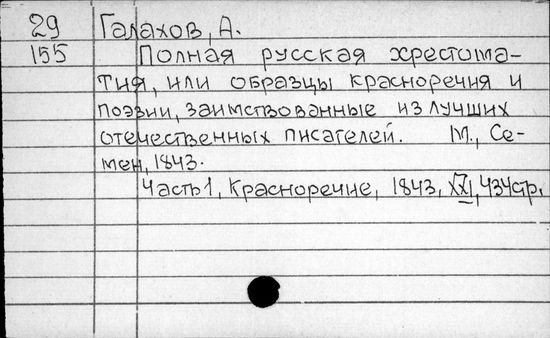 29 Галахов, А.
155 Полная русская хрестома-
тия, или образцы красноречия и
поэзии, заимствованные из лучших
отечественных писателей. М., Се-
мен, 1843.
Часть 1, Красноречие, 1843, XXI, 434 стр.